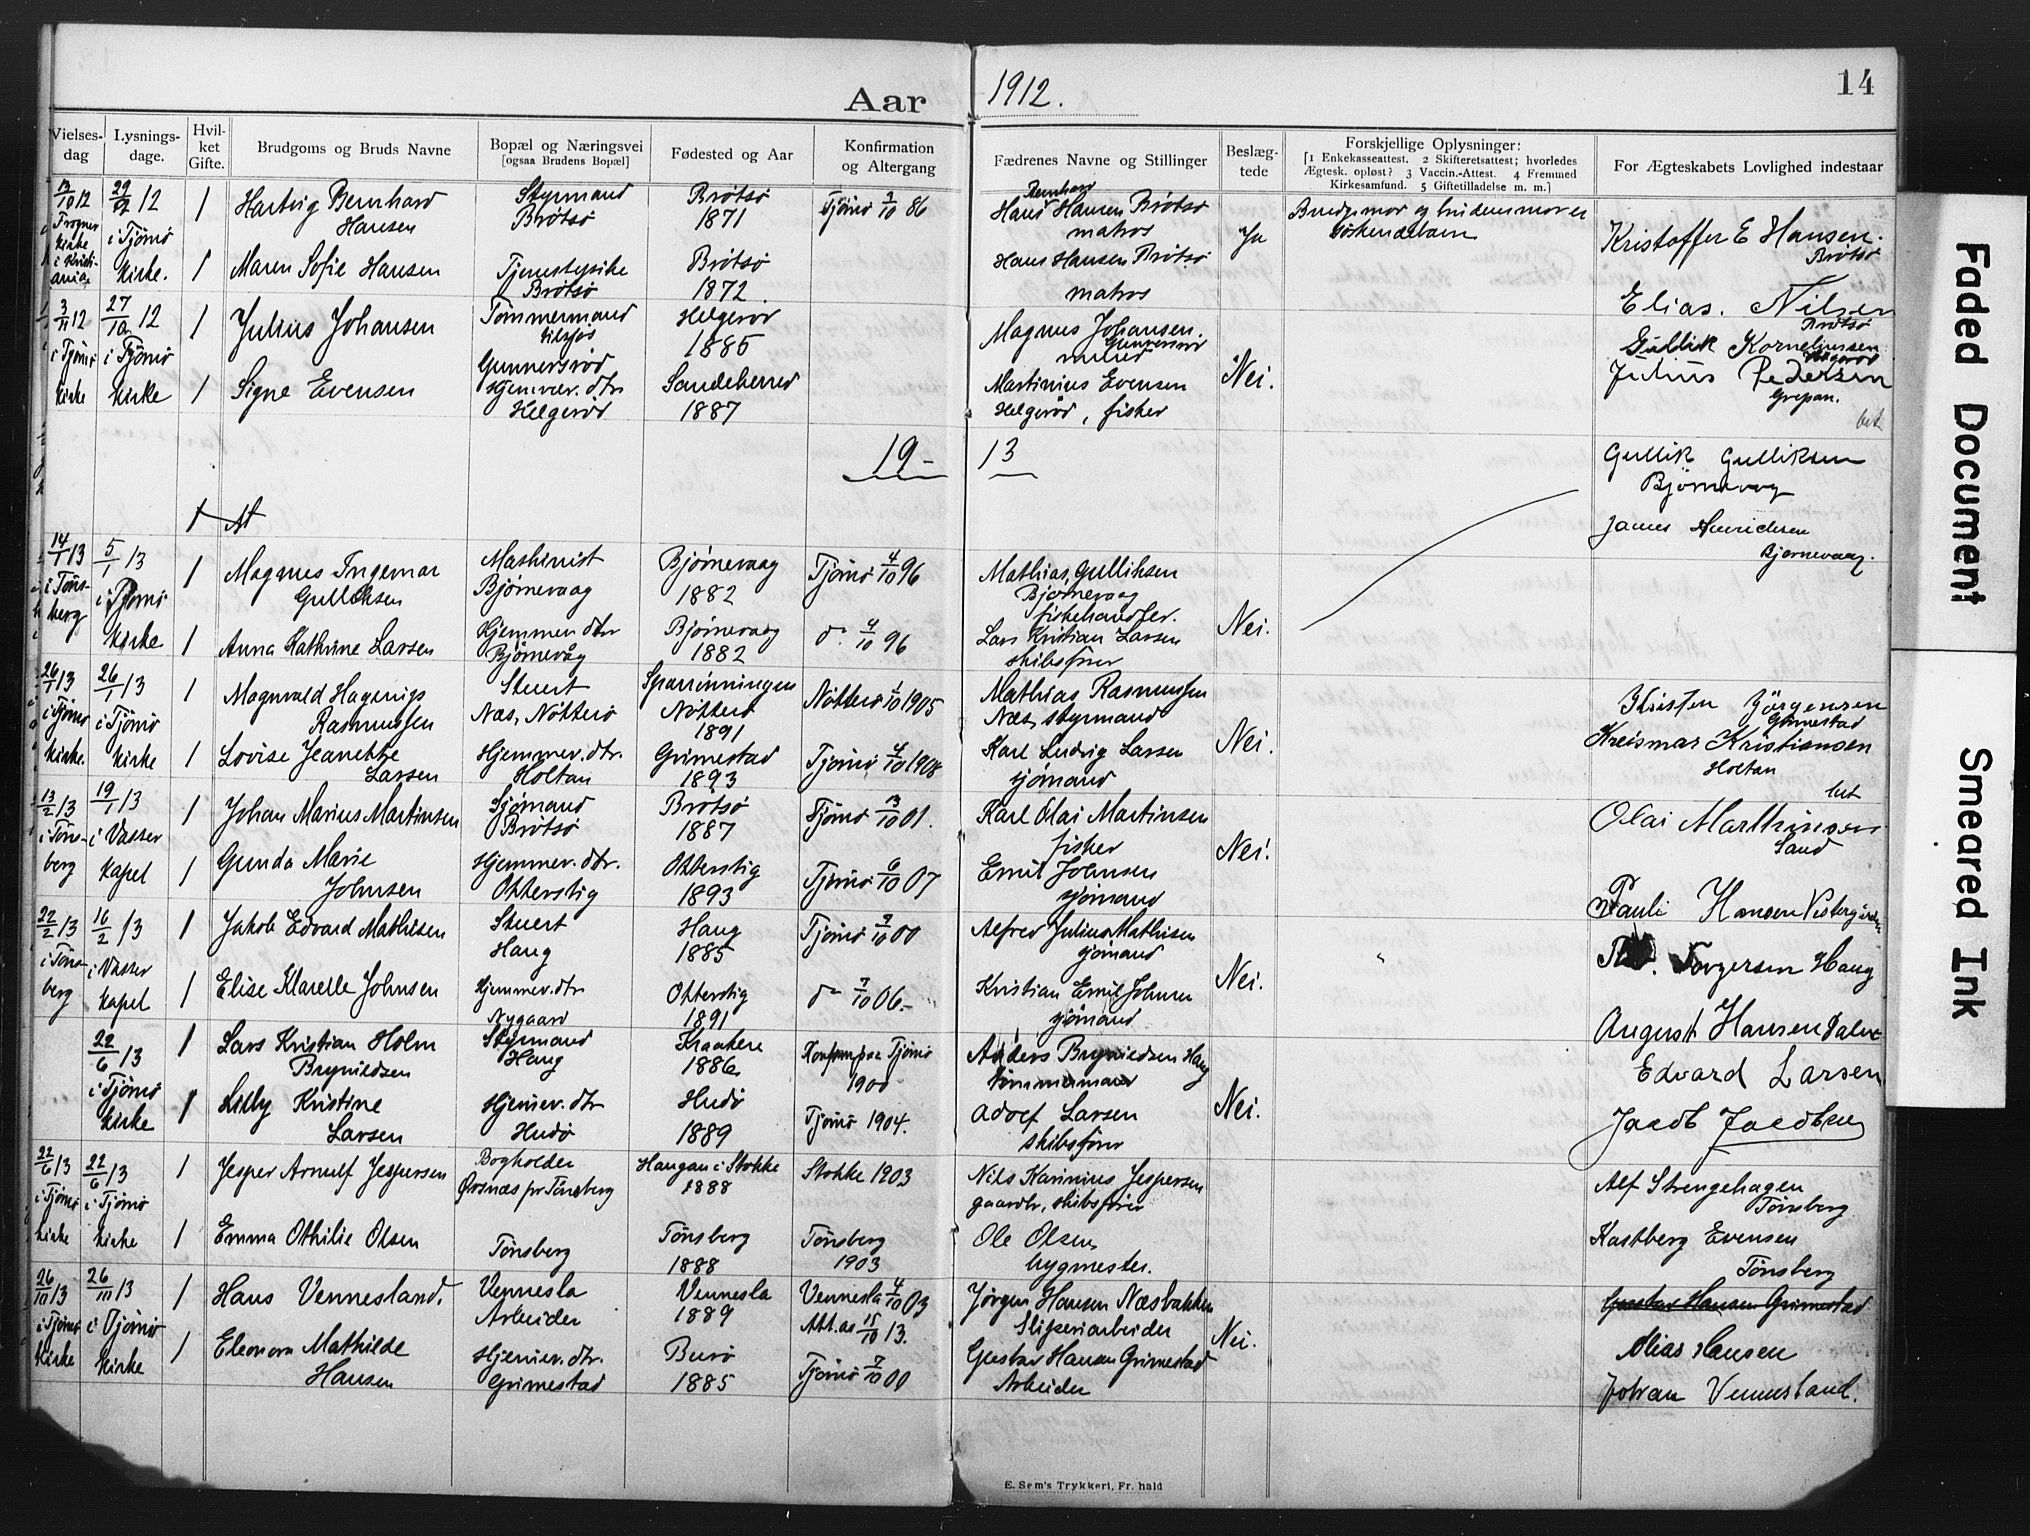 Aar 1912.
14
Vielses-dag
Lysnings-dage.
Hvil-ket Gifte.
Brudgoms og Bruds Navne
Bopæl og Næringsvei [ogsaa Brudens Bopæl]
Fødested og Aar
Konfirmation og Altergang
Fædrenes Navne og Stillinger
Beslæg-tede
Forskjellige Oplysninger:
[1 Enkekasseattest. 2 Skifteretsattest; hvorledes
Ægtesk. opløst? 3 Vaccin.-Attest. 4 Fremmed
Kirkesamfund. 5 Giftetilladelse m. m.]
For Ægteskabets Lovlighed indestaar
13/10 12 Frogner kirke i Kristiania
29/9 12 i Tjömö kirke.
1 Hartvig Bernhard Hansen
Styrmand Brötsö
Brötsö 1871
Tjömö 3/10 86
Hans Bernhard Hansen Brötsö matros
Ja
Brudgs mor og brudens mor er söskendebarn
Kristoffer E Hansen. Brötsö
1 Maren Sofie Hansen
Tjenestepike Brötsö
Brötsö 1872.
Hans Hansen Brötsö matros
Elias. Nilsen Brötsö
3/11 12 i Tjömö kirke
27/10 12 i Tjömö kirke
1 Julius Johansen
Tömmermand Gunnersröd
Helgeröd 1885
Magnus Johansen. Gunnersröd
Nei.
Gullik Korneliussen Helgeröd
1 Signe Evensen
Hjemvær. dtr Helgeröd
Sandeherred 1887
Martinius Evensen Helgeröd, fisker
Julius Pedersen Grepan.
19-13
Gullik Gulliksen Bjørnevaag
James Henricksen Bjørnevaag.
14/1 13 i Töns-berg
5/1 13 i Tjömö kirke
1 Magnus Ingemar Gulliksen
Maskinist Bjørnevaag
Bjørnevaag 1882
Tjömö 4/10 96
Mathias Gulliksen Bjørnevaag fiskehandler.
Nei.
1 Anna Kathrine Larsen
Hjemmev. dtr Bjørnevåg
Bjørnevaag 1882
do 4/10 96
Lars Kristian Larsen skibsförer
26/1 13 i Tjömö kirke.
26/1 13 i Tjömö kirke
1 Magnvald Hagerup Rasmussen
Stuert Næs, Nötterö
Nötterö 1891
Nötterö 1/10 1905
Mathias Rasmussen Næs, styrmand
Nei.
Kristen Jörgensen Grimestad
1 Lovise Jeanette Larsen
Hjemmev. dtr. Holtan
Grimestad 1893
Tjömö 4/10 1908
Karl Ludvig Larsen sjömand
Kreismar Kristiansen Holtan
13/2 13 i Töns-berg
19/1 13 i Vasser kapel
1 Johan Marius Martinsen
Sjömand Brötsö
Brötsö 1887
Tjömö 13/10 01.
Karl Olai Martinsen fisker
Nei.
Olai Marthinsen Sand
1 Gunda Marie Johnsen
Hjemmev. dtr. Otterstig
Otterstig 1893
Tjömö 6/10 07
Emil Johnsen sjömand
Pauli Hansen Vestergården
22/2 13 i Töns-berg
16/2 13 i Vasser kapel
1 Jakob Edvard Mathisen
Stuert Haug
Haug 1885
Tjömö 7/10 00
Alfred Julius Mathisen sjömand
Nei.
Torgersen Haug
1 Elise Klarelle Johnsen
Hjemmev. dtr Nygaard
Otterstig 1891
do 7/10 06.
Kristian Emil Johnsen sjömand
August Hansen
22/6 13 i Tjömö kirke
1 Lars Kristian Holm Brynildsen
Styrmand Haug
Kraakere 1886
Tjömö 1900
Anders Brynildsen Haug tömmermand
Nei.
Edvard Larsen
1 Lilly Kristine Larsen
Hjemev. dtr Hudö
Hudö 1889
Tjömö 1904.
Adolf Larsen skibsförer
Jacob Jacobsen
22/6 13 i Tjömö kirke
22/6 13 i Tjömö kirke
1 Jesper Arnulf Jespersen
Bogholder Örsnæs pr Tönsberg
Haugan i Stokke 1888
Stokke 1903
Nils Karinius Jespersen gaardbr, skibsförer
Alf Strengehagen Tönsberg
1 Emma Othilie Olsen
Tönsberg
Tönsberg 1888
Tönsberg 1903
Ole Olsen bygmester.
Kastberg Evensen Tönsberg
26/10 13 i Tjömö kirke
26/10 13 i Tjömö kirke
1 Hans Vennesland.
Vennesla Arbeider
Vennesla 1889
Vennesla 4/10 03 Att. as 15/10 13.
Jörgen Hansen Næsbakken Sliperiarbeider
Nei.
Gustav Hansen Grimestad
Alias Hansen
1 Eleonora Mathilde Hansen
Hjemev. dtr. Grimestad
Burö 1885
Tjömö 7/10 00
Gustav Hansen Grimestad Arbeider
Johan Vennesland.
E. Sem's Trykkeri, Fr. hald
Faded Document
Smeared Ink